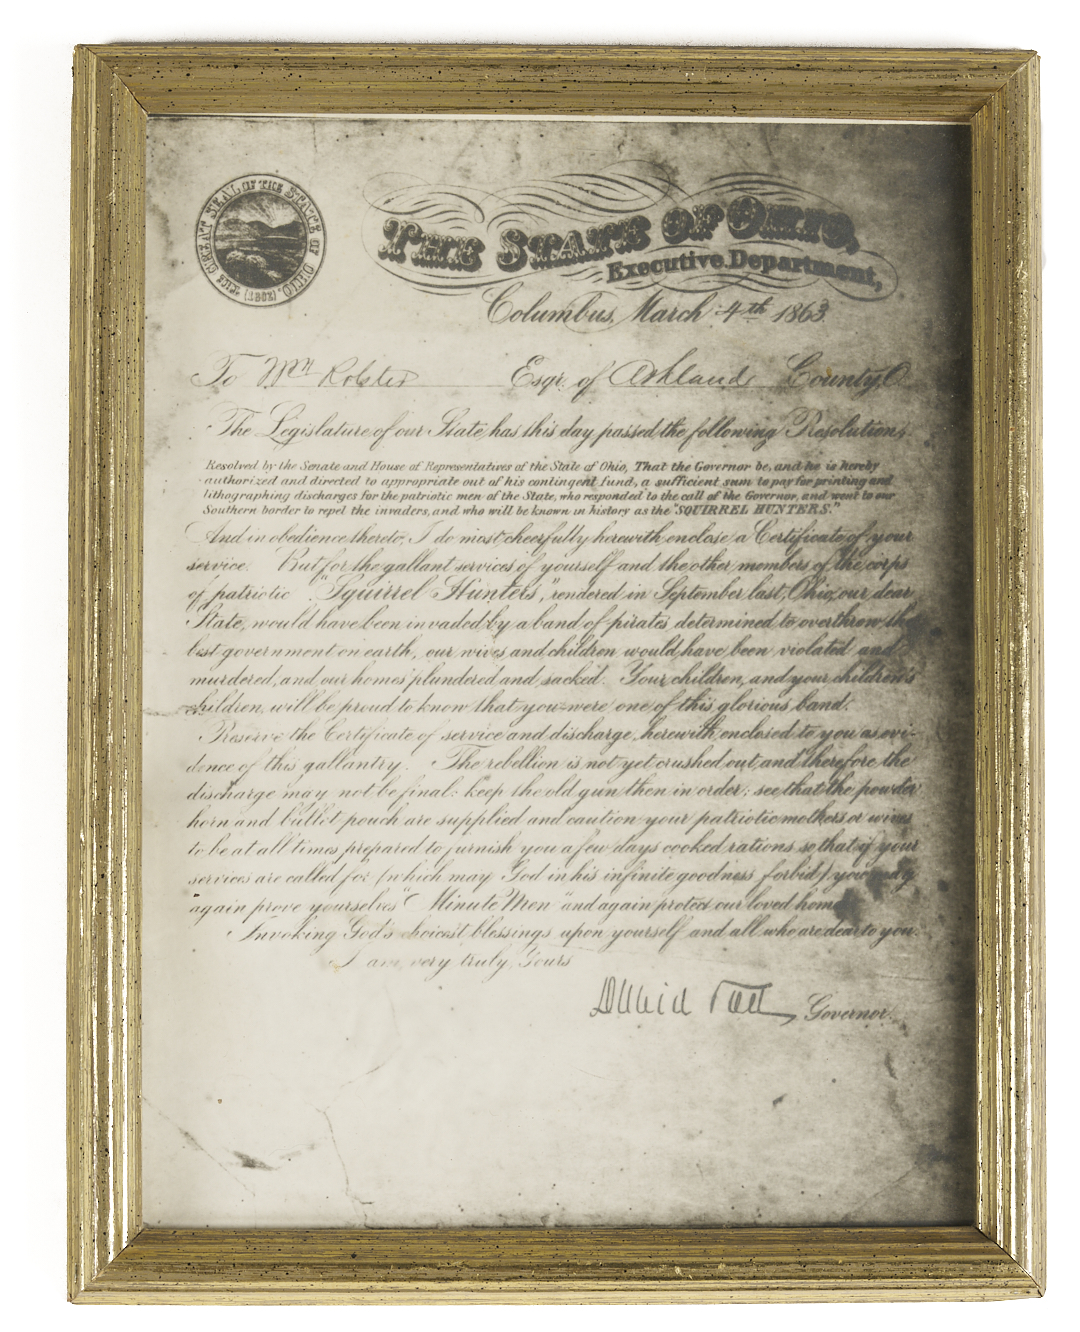 THE GREAT SEAL OF THE STATE OF OHIO. (1802)
THE STATE OF OHIO,
Executive Department,
Columbus, March 4th 1863.
To Wm Esqr. of Ashland County, O
The Legislature of our State, has this day passed the following Resolution,
Resolved by the Senate and House of Representatives of the State of Ohio, That the Governor be, and he is hereby
authorized and directed to appropriate out of his contingent fund, a sufficient sum to pay for printing and
lithographing discharges for the patriotic men of the State, who responded to the call of the Governor, and went to our
Southern border to repel the invaders, and who will be known in history as the "SQUIRREL HUNTERS."
And in obedience thereto, I do most cheerfully herewith enclose a Certificate of your
service. But for the gallant services of yourself and the other members of the corps
of patriotic "Squirrel Hunters", rendered in September last, Ohio, our dear
State, would have been invaded by a band of pirates determined to overthrow the
best government on earth, our wives and children would have been violated and
murdered, and our homes plundered and sacked. Your children, and your children's
children, will be proud to know that you were one of this glorious band.
Preserve the Certificate of service and discharge, herewith enclosed to you as evi-
dence of this gallantry. The rebellion is not yet crushed out, and therefore the
discharge may not be final: keep the old gun then in order; see that the powder
horn and bullet pouch are supplied and caution your patriotic mothers or wives
to be at all times prepared to furnish you a few days cooked rations so that if your
services are called for (which may God in his infinite goodness forbid) you may
again prove yourselves "Minute Men" and again protect our loved homes.
Invoking God's choicest blessings upon yourself and all who are dear to you.
I am very truly, Yours
David Tod, Governor.